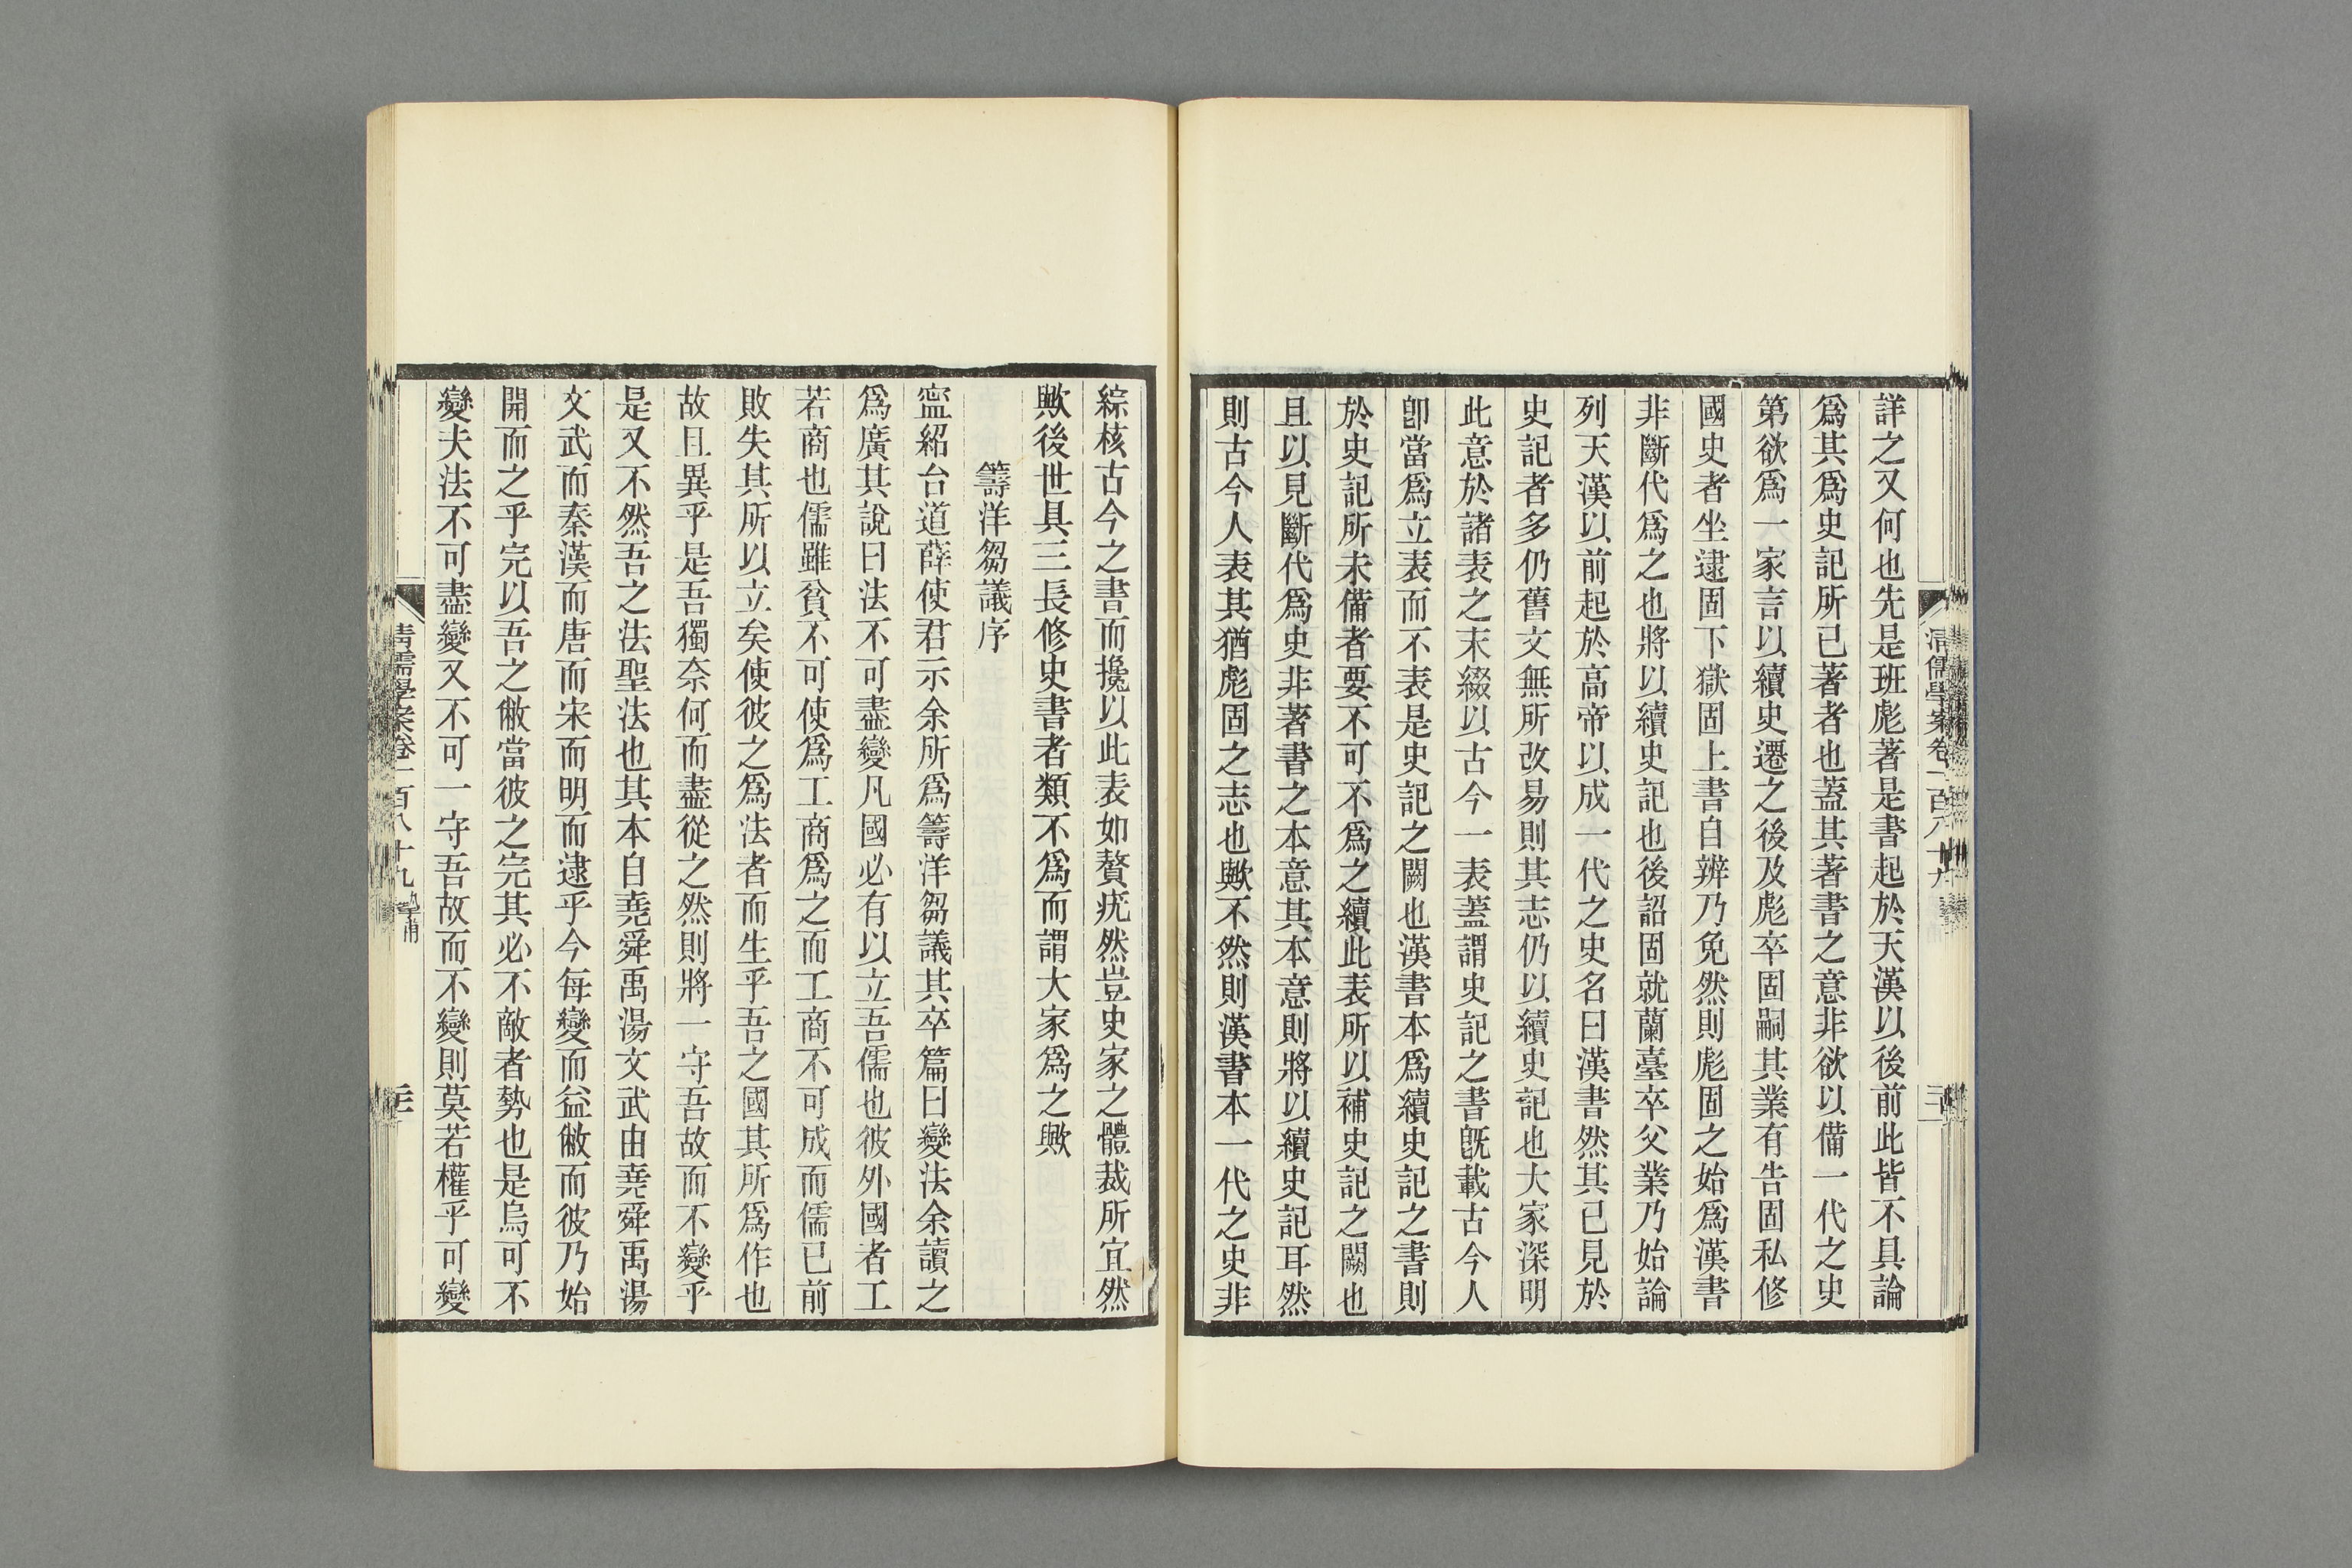 清儒學案卷一百八十九
詳之又何也先是班彪著是書起於天漢以後前此皆不具論
爲其爲史記所已著者也蓋其著書之意非欲以備一代之史
第欲爲一家言以續史遷之後及彪卒固嗣其業有告固私修
國史者坐逮固下獄固上書自辨乃免然則彪固之始爲漢書
非斷代爲之也將以續史記也後詔固就蘭臺卒父業乃始論
列天漢以前起於高帝以成一代之史名曰漢書然其已見於
史記者多仍舊文無所改易則其志仍以續史記也大家深明
此意於諸表之末綴以古今一表蓋謂史記之書旣載古今人
卽當爲立表而不表是史記之闕也漢書本爲續史記之書則
於史記所未備者要不可不爲之續此表所以補史記之闕也
且以見斷代爲史非著書之本意其本意則將以續史記耳然
則古今人表其猶彪固之志也歟不然則漢書本一代之史非
綜核古今之書而攙以此表如贅疣然豈史家之體裁所宜然
歟後世具三長修史書者類不爲而謂大家爲之歟
籌洋芻議序
寍紹台道薛使君示余所爲籌洋芻議其卒篇曰變法余讀之
爲廣其說曰法不可盡變凡國必有以立吾儒也彼外國者工
若商也儒雖貧不可使爲工商爲之而工商不可成而儒已前
敗失其所以立矣使彼之爲法者而生乎吾之國其所爲作也
故且異乎是吾獨奈何而盡從之然則將一守吾故而不變乎
是又不然吾之法聖法也其本自堯舜禹湯文武由堯舜禹湯
文武而秦漢而唐而宋而明而逮乎今每變而益敝而彼乃始
開而之乎完以吾之敝當彼之完其必不敵者勢也是烏可不
變夫法不可盡變又不可一守吾故而不變則莫若權乎可變
清儒學案卷一百八十九